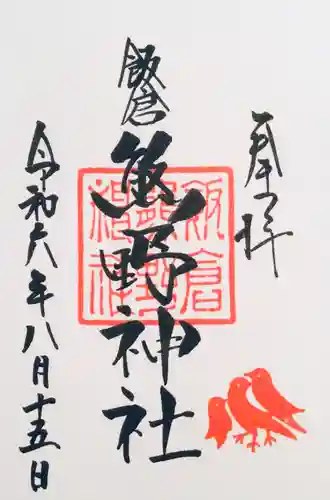 奉拝
飯倉
熊野神社
飯倉熊野神社
令和六年八月十五日